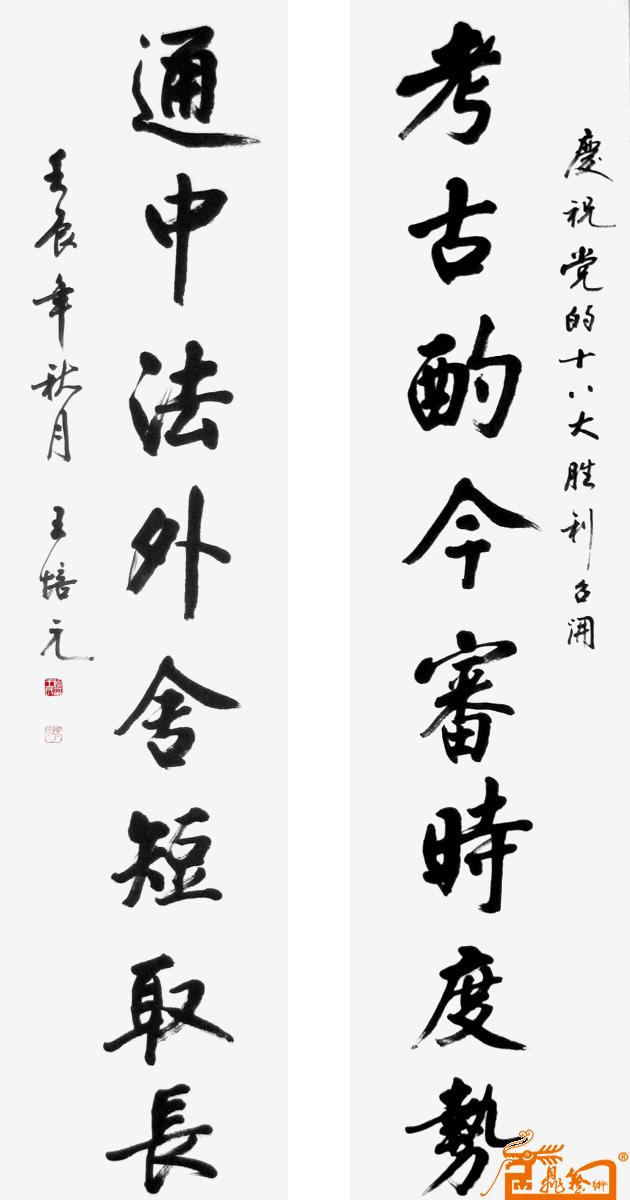 慶祝党的十八大胜利召開
考古酌今審時度勢
通中法外舍短取長
壬辰年秋月 王培元